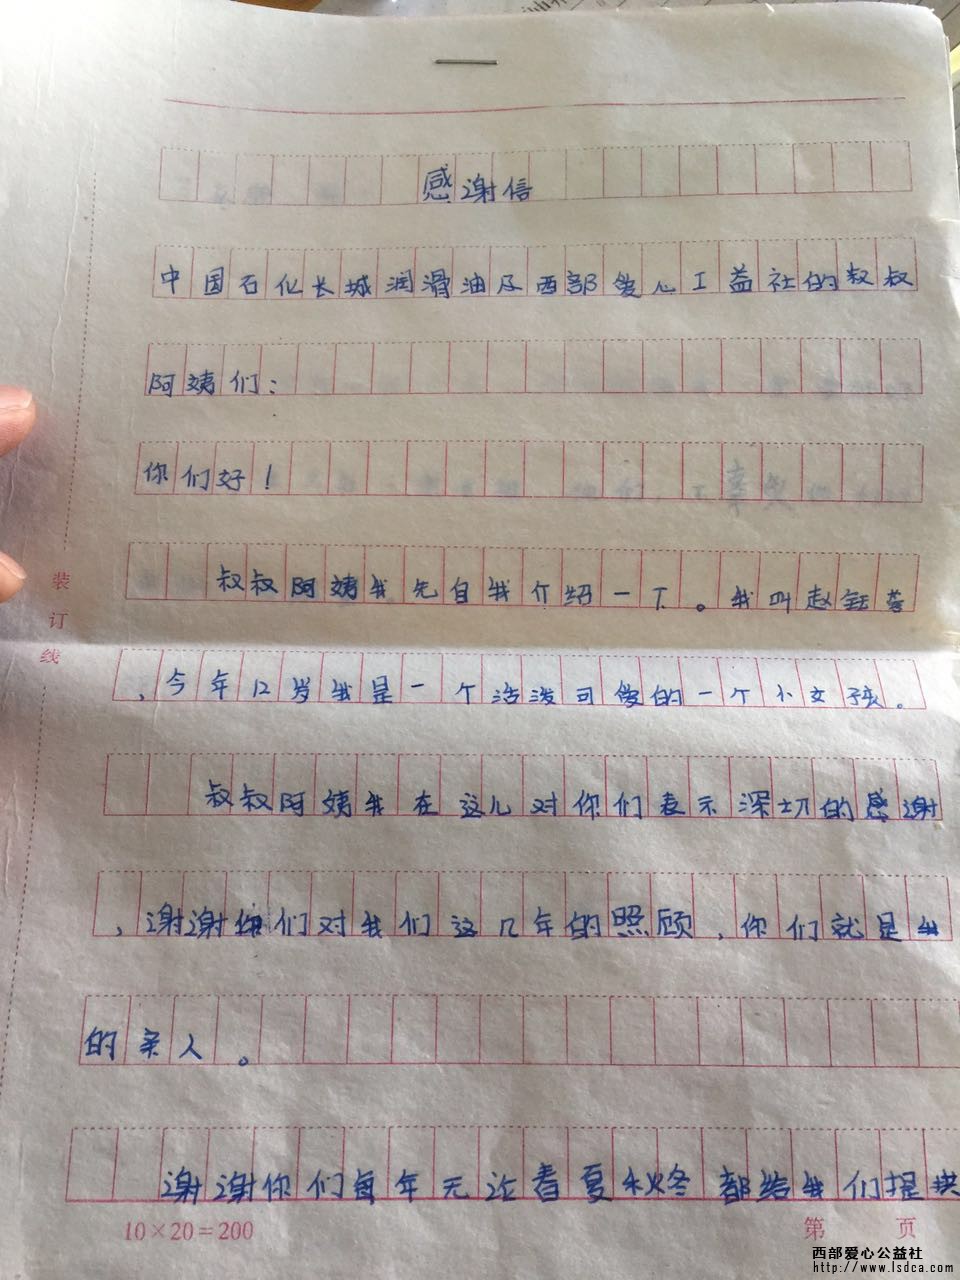 感谢信
中国石化长城润滑油及西部爱心工益社的叔叔
阿姨们：
你们好！
叔叔阿姨我先自我介绍一下。我叫赵钰
，今年12岁我是一个活泼可爱的一个小女孩。
叔叔阿姨我在这儿对你们表示深切的感谢
，谢谢你们对我们这几年的照顾，你们就是我
的亲人。
谢谢你们每年无论春夏秋冬都给我们提供
装订线
10×20=200
第 页
西部爱心公益社
http://www.lsdca.com